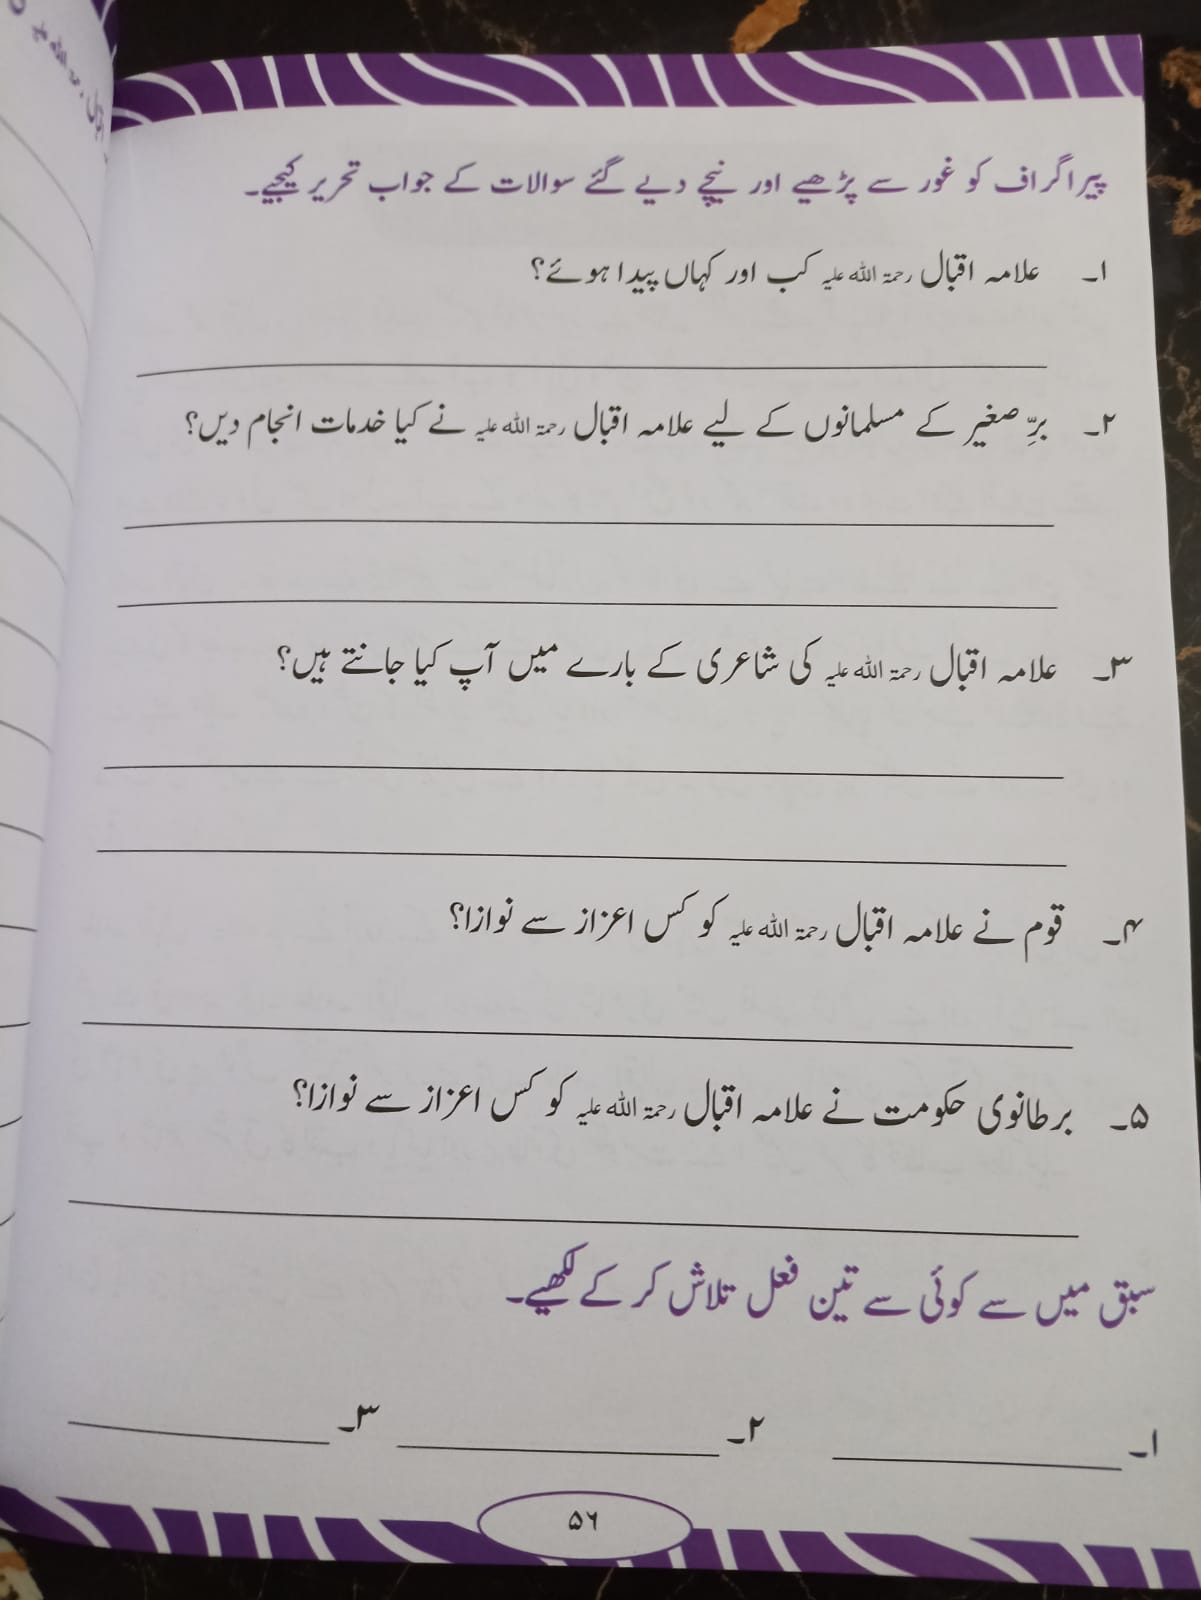 پیراگراف کو غور سے پڑھیے اور نیچے دیے گئے سوالات کے جواب تحریر کیجیے۔
۱۔ علامہ اقبال رحمۃ اللہ علیہ کب اور کہاں پیدا ہوئے؟
۲۔ برِّ صغیر کے مسلمانوں کے لیے علامہ اقبال رحمۃ اللہ علیہ نے کیا خدمات انجام دیں؟
۳۔ علامہ اقبال رحمۃ اللہ علیہ کی شاعری کے بارے میں آپ کیا جانتے ہیں؟
۴۔ قوم نے علامہ اقبال رحمۃ اللہ علیہ کو کس اعزاز سے نوازا؟
۵۔ برطانوی حکومت نے علامہ اقبال رحمۃ اللہ علیہ کو کس اعزاز سے نوازا؟
سبق میں سے کوئی سے تین فعل تلاش کر کے لکھیے۔
۱۔ ۲۔ ۳۔
۵۶